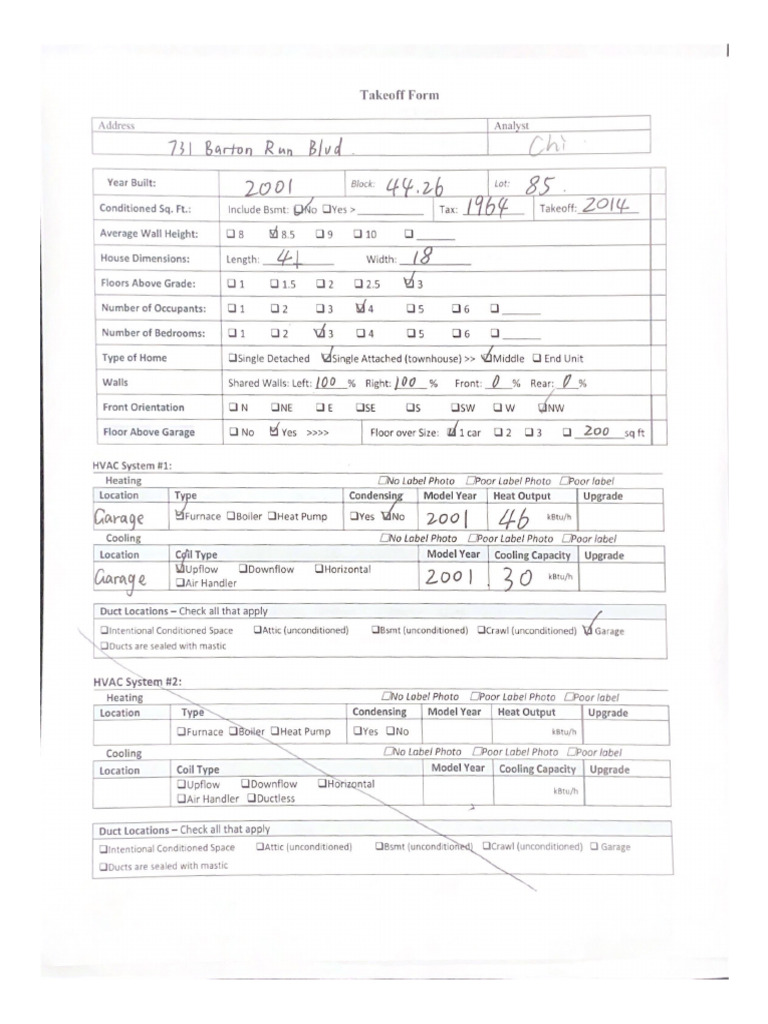 Takeoff Form
Address Analyst
731 Barton Run Blvd Chi
Year Built: 2001 Block: 44.26 Lot: 85.
Conditioned Sq. Ft.: Include Bsmt: ☑No ☐Yes > ________ Tax: 1964 Takeoff: 2014
Average Wall Height: ☐ 8 ☑ 8.5 ☐ 9 ☐ 10 ☐ ______
House Dimensions: Length: 41 Width: 18
Floors Above Grade: ☐ 1 ☐ 1.5 ☐ 2 ☐ 2.5 ☑ 3
Number of Occupants: ☐ 1 ☐ 2 ☐ 3 ☑ 4 ☐ 5 ☐ 6 ☐ ______
Number of Bedrooms: ☐ 1 ☐ 2 ☑ 3 ☐ 4 ☐ 5 ☐ 6 ☐ ______
Type of Home ☐Single Detached ☑Single Attached (townhouse) >> ☑Middle ☐ End Unit
Walls Shared Walls: Left: 100 % Right: 100 % Front: 0 % Rear: 0 %
Front Orientation ☐ N ☐NE ☐ E ☐SE ☐S ☐SW ☐ W ☑NW
Floor Above Garage ☐ No ☑ Yes >>>> Floor over Size: ☑ 1 car ☐ 2 ☐ 3 ☐ 200 sq ft
HVAC System #1:
Heating ☐No Label Photo ☐Poor Label Photo ☐Poor label
Location Type Condensing Model Year Heat Output Upgrade
Garage ☑Furnace ☐Boiler ☐Heat Pump ☐Yes ☑No 2001 46 kBtu/h
Cooling ☐No Label Photo ☐Poor Label Photo ☐Poor label
Location Coil Type Model Year Cooling Capacity Upgrade
Garage ☑Upflow ☐Downflow ☐Horizontal 2001 30 kBtu/h
☐Air Handler
Duct Locations – Check all that apply
☐Intentional Conditioned Space ☐Attic (unconditioned) ☐Bsmt (unconditioned) ☐Crawl (unconditioned) ☑ Garage
☐Ducts are sealed with mastic
HVAC System #2:
Heating ☐No Label Photo ☐Poor Label Photo ☐Poor label
Location Type Condensing Model Year Heat Output Upgrade
☐Furnace ☐Boiler ☐Heat Pump ☐Yes ☐No kBtu/h
Cooling ☐No Label Photo ☐Poor Label Photo ☐Poor label
Location Coil Type Model Year Cooling Capacity Upgrade
☐Upflow ☐Downflow ☐Horizontal kBtu/h
☐Air Handler ☐Ductless
Duct Locations – Check all that apply
☐Intentional Conditioned Space ☐Attic (unconditioned) ☐Bsmt (unconditioned) ☐Crawl (unconditioned) ☐ Garage
☐Ducts are sealed with mastic